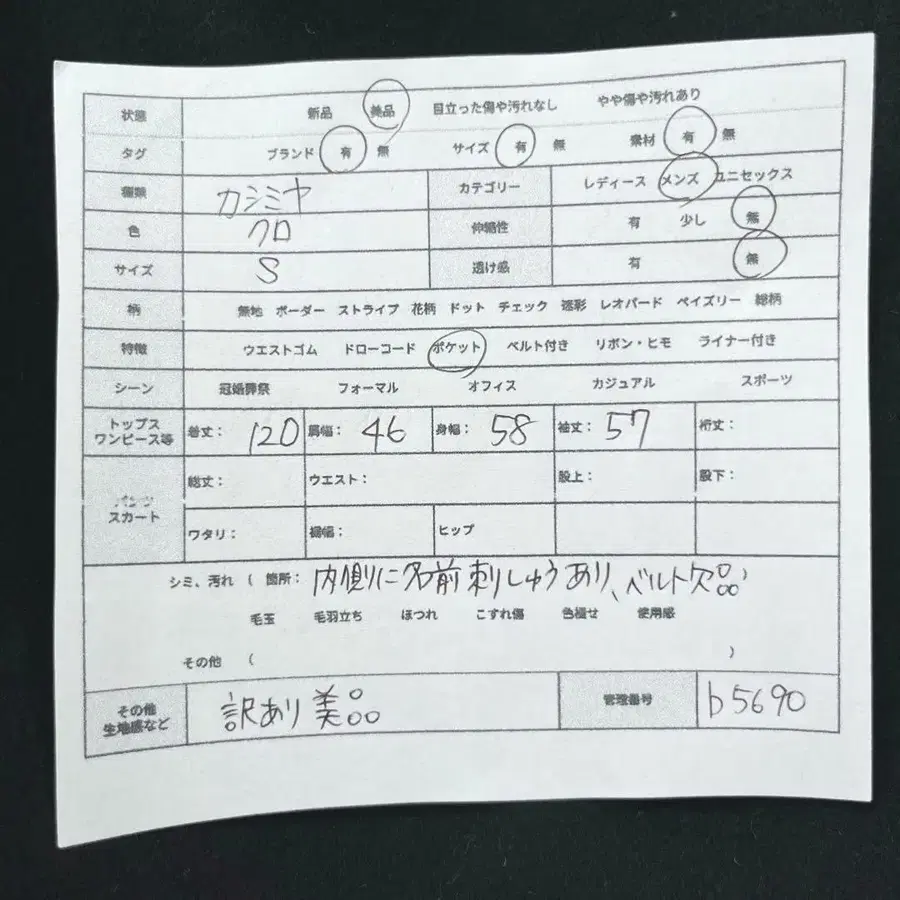 状態 新品 美品 目立った傷や汚れなし やや傷や汚れあり
タグ ブランド 有 無 サイズ 有 無 素材 有 無
種類 カシミヤ カテゴリー レディース メンズ ユニセックス
色 クロ 伸縮性 有 少し 無
サイズ S 透け感 有 無
柄 無地 ボーダー ストライプ 花柄 ドット チェック 迷彩 レオパード ペイズリー 総柄
特徴 ウエストゴム ドローコード ポケット ベルト付き リボン・ヒモ ライナー付き
シーン 冠婚葬祭 フォーマル オフィス カジュアル スポーツ
トップス
ワンピース等 着丈: 120 肩幅: 46 身幅: 58 袖丈: 57 裄丈:
パンツ
スカート
総丈: ウエスト: 股上: 股下:
ワタリ: 裾幅: ヒップ
シミ、汚れ ( 箇所: 内側に名前刺しゅうあり、ベルト欠品)
毛玉 毛羽立ち ほつれ こすれ傷 色褪せ 使用感
その他 ( )
その他
生地感など 訳あり美品 管理番号 b5690